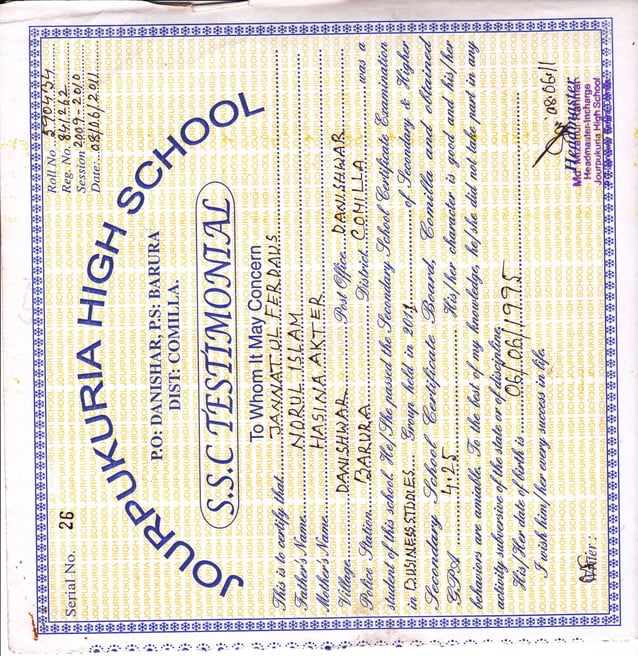 Serial No. 26
Roll No
Reg. No. 841262
Session 2009-2010
Date: 08/06/2011
JOURPUKURIA HIGH SCHOOL
P.O: DANISHAR, P.S: BARURA
DIST: COMILLA.
S.S.C TESTIMONIAL
To Whom It May Concern
This is to certify that JANNATUL FERDAUS
Father's Name NORUL ISLAM
Mother's Name HASINA AKTER
Village DANISHWAR Post Office DANISHWAR
Police Station BARURA District COMILLA was a
student of this school. He/She passed the Secondary School Certificate Examination
in BUSINESS STUDIES Group held in 2011 of Secondary & Higher
Secondary School Certificate Board, Comilla and obtained
GPA 4.25 His/her character is good and his/her
behaviors are amiable. To the best of my knowledge, he/she did not take part in any
activity subersive of the state or of discipline.
His/Her date of birth is 06/06/1995
I wish him/her every success in life.
Writer:
08.06.11
Headmaster
Md. Mizanur Rahman
Headmaster-Incharge
Jourpukuria High School